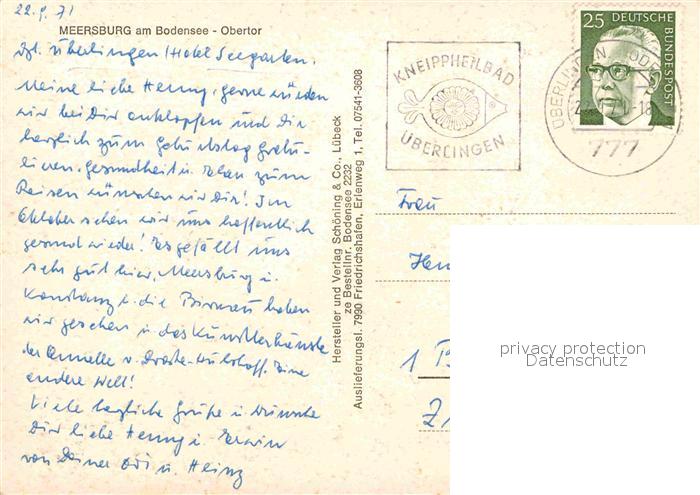 22.9.71
MEERSBURG am Bodensee - Obertor
zzt. Überlingen (Hotel Seegarten.
Meine liebe Henny, gerne würden
wir bei Dir anklopfen und Dir
herzlich zum Geburtstag gratu-
lieren, Gesundheit u. zum
Reisen wünschen wir Dir! Im
Oktober sehen wir uns hoffentlich
gesund wieder! Es gefällt uns
sehr gut hier, Meersburg u.
Konstanz u. die Birnau haben
wir gesehen u. das
der Annette v. Droste-Hülshoff. Eine
andere Welt!
Viele herzliche Grüße u. Wünsche
Dir liebe Henny u. Erwin
von Deiner u. Heinz
Hersteller und Verlag Schöning & Co., Lübeck
ze Bestellnr. Bodensee 2232
Auslieferungsl. 7990 Friedrichshafen, Erlenweg 1, Tel. 07541-3608
KNEIPPHEILBAD
ÜBERLINGEN
25 DEUTSCHE
BUNDESPOST
ÜBERLINGEN
-18
777
Frau
1
privacy protection
Datenschutz